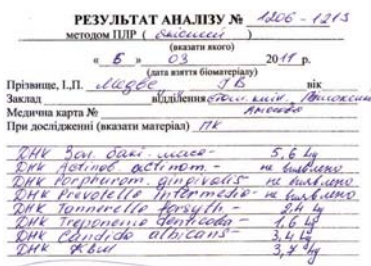 РЕЗУЛЬТАТ АНАЛІЗУ № 1206-1213
методом ПЛР ( якісний )
(вказати якого)
« 6 » 03 2017 р.
(дата взяття біоматеріалу)
Прізвище, І.,П. вік
Заклад відділення
Медична карта №
При дослідженні (вказати матеріал) ПК
ДНК Заг. бакт. маса - 5,6 Lg
ДНК Actinob. actinom. - не виявлено
ДНК Porphyrom. gingivalis - не виявлено
ДНК Prevotella intermedia - не виявлено
ДНК Tannerella forsyth - 2,4 Lg
ДНК Treponema denticola - 1,6 Lg
ДНК Candida albicans - 3,4 Lg
ДНК 3,7 Lg